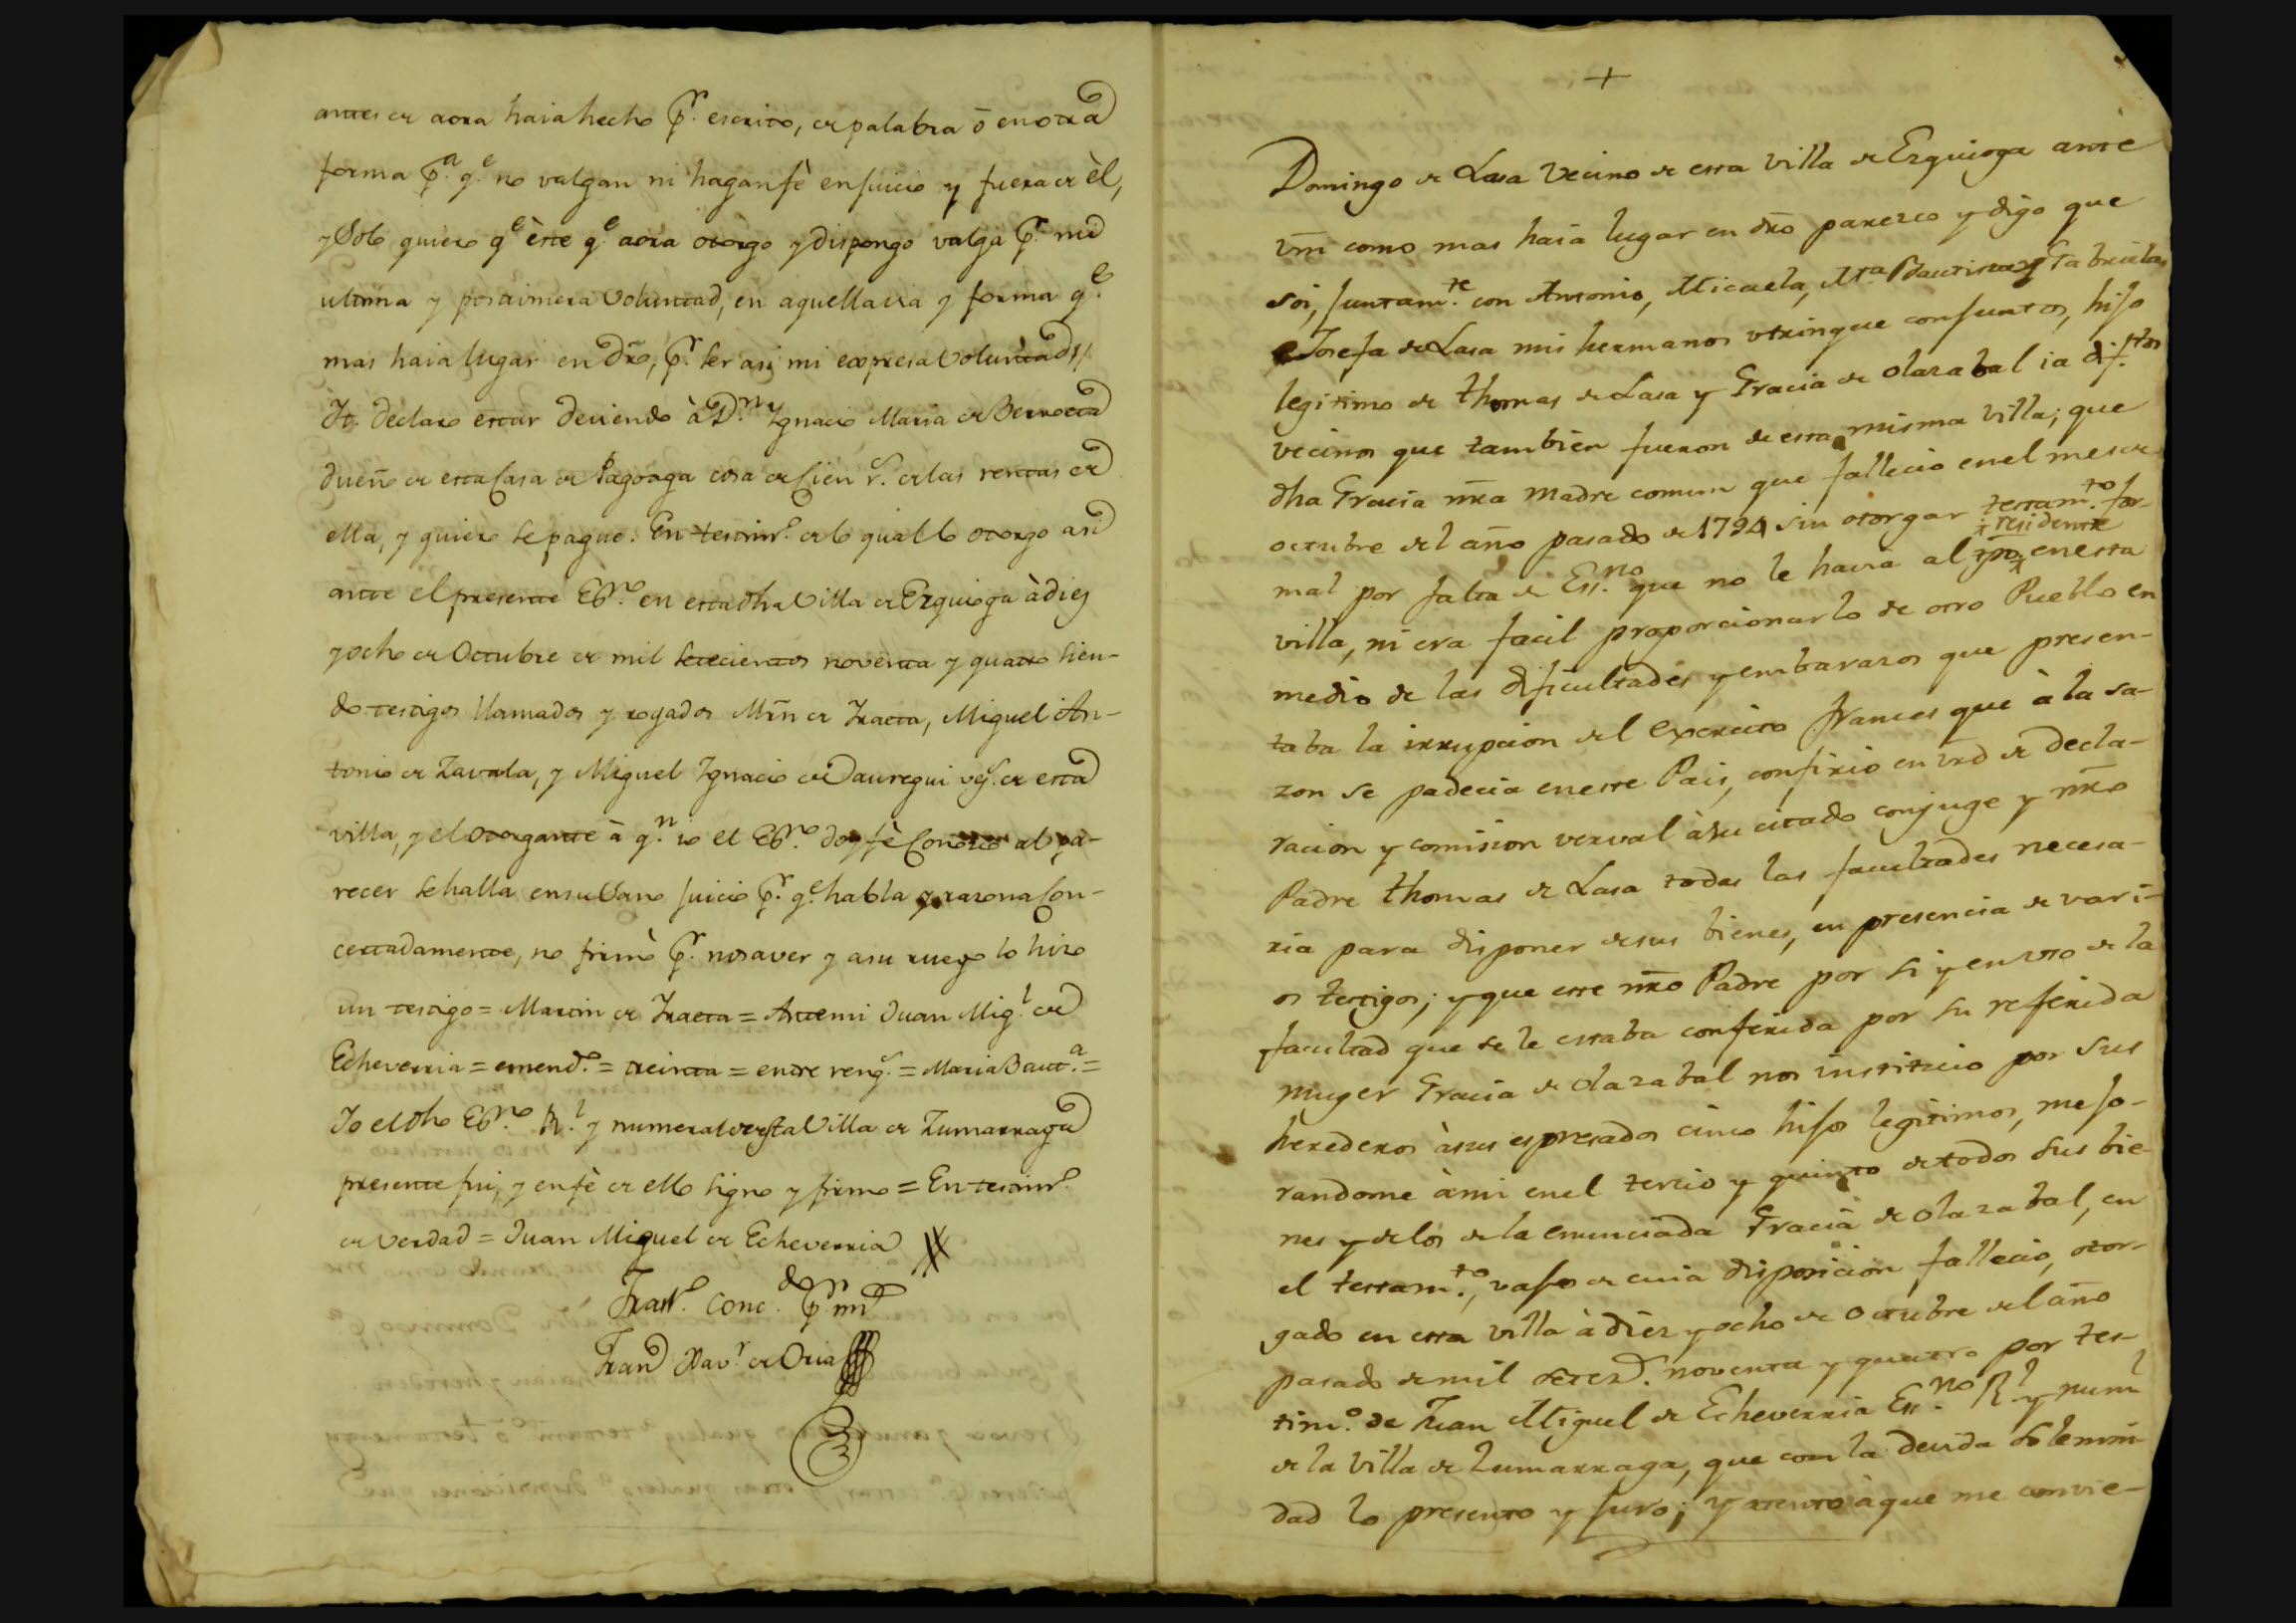 antes de aora haia hecho pr. escrito, de palabra ò en otra
forma pa. qe. no valgan ni hagan fè en juicio y fuera de èl,
y solo quiero qe. èste qe. aora otorgo y dispongo valga pr. mi
ultima y postrimera voluntad, en aquella via y forma qe.
mas haia lugar en dro, pr. ser asi mi expresa voluntad //
It. declaro estar deviendo à Dn. Ignacio Maria de Berroeta
dueño de esta casa de Pagoaga cosa de cien rs. de las rentas de
ella, y quiero se pague. En testimo. de lo qual lo otorgo asi
ante el presente Esno. en esta dha villa de Ezquioga à diez
y ocho de Octubre de mil setecientos noventa y quatro sien-
do testigos llamados y rogados Mrn de Iraeta, Miguel An-
tonio de Zavala, y Miguel Ignacio de Jauregui vezs. de esta
villa, y el otorgante à qn. io el Esno. doy fè conozco al pa-
recer se halla en su sano juicio pr. qe. habla y razona con-
certadamente, no firmò pr. no saver y a su ruego lo hizo
un testigo = Martin de Iraeta = Ante mi Juan Migl. de
Echeverria = emendo. = treinta = entre rengs. = Maria Bauta. =
Io el dho Esno. Rl. y numeral de esta Villa de Zumarraga
presente fui, y en fè de ello signo y firmo = En testimo.
de verdad = Juan Miguel de Echeverria
Trasdo. conc. do pr. mi
Fran Xavr. de Oria
+
Domingo de Lasa vecino de esta villa de Ezquioga ante
vm como mas haia lugar en dro parezco y digo que
soi, juntamte. con Antonio, Micaela, Ma. Bautista y Gabriela
Josefa de Lasa mis hermanos utrinque conjuntos, hijo
legitimo de Thomas de Lasa y Gracia de Olazabal ia diftos.
vecinos que tambien fueron de esta misma villa; que
dha Gracia nra madre comun que fallecio en el mes de
octubre del año pasado de 1794 sin otorgar testamto. for-
mal por falta de Essno. que no le havia al tpo + residente en esta
villa, ni era facil proporcionarlo de otro Pueblo en
medio de las dificultades y embarazos que presen-
taba la irrupcion del Exercito frances que à la sa-
zon se padecia en este Pais, confirio en vrd de decla-
racion y comision verval à su citado conjuge y nro
Padre Thomas de Lasa todas las facultades necesa-
ria para disponer de sus bienes, en presencia de vari-
os testigos; y que este nro Padre por si y en uso de la
facultad que se le estaba conferida por su referida
muger Gracia de Olazabal nos instituio por sus
herederos à sus espresados cinco hijos legitimos, mejo-
randome à mi en el tercio y quinto de todos sus bie-
nes y de los de la enunciada Gracia de Olazabal, en
el testamto., vajo de cuia disposicion fallecio, otor-
gado en esta villa à diez y ocho de Octubre del año
pasado de mil setezs. noventa y quatro por tes-
timo. de Juan Miguel de Echeverria Essno. Rl. y numl
de la villa de Zumarraga, que con la devida solemni-
dad lo presento y juro; y atento à que me convie-